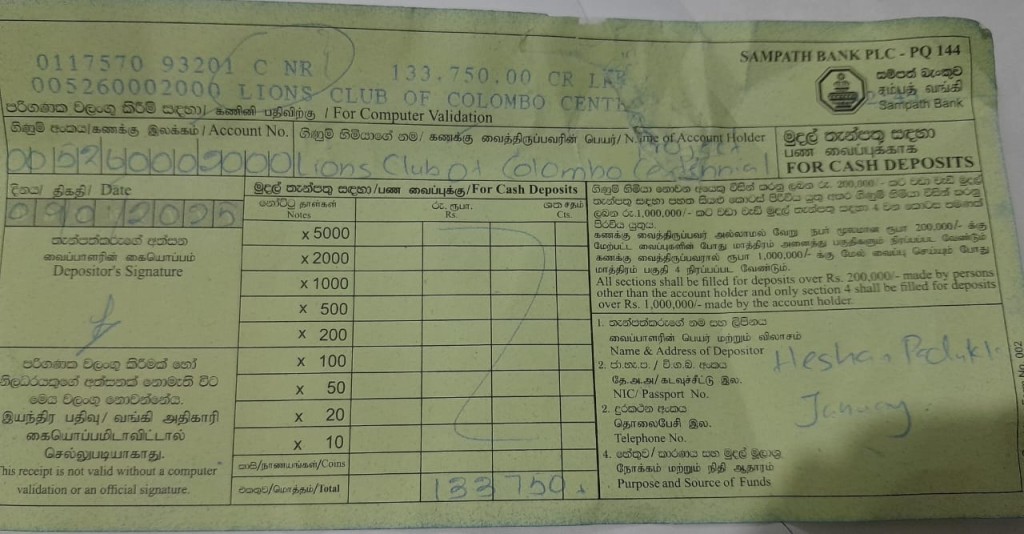 SAMPATH BANK PLC - PQ 144
0117570 93201 C NR 133,750.00 CR LKR
005260002000 LIONS CLUB OF COLOMBO CENT
සම්පත් බැංකුව
சம்பத் வங்கி
Sampath Bank
පරිගණක වලංගු කිරීම් සඳහා / கணினி பதிவிற்கு / For Computer Validation
ගිණුම් අංකය/கணக்கு இலக்கம் / Account No.
ගිණුම් හිමියාගේ නම/ கணக்கு வைத்திருப்பவரின் பெயர்/ Name of Account Holder
මුදල් තැන්පතු සඳහා
பண வைப்புக்காக
FOR CASH DEPOSITS
005260002000
Lions Club Of Colombo Centennial
දිනය/ திகதி / Date
මුදල් තැන්පතු සඳහා/பண வைப்புக்கு/For Cash Deposits
නෝට්ටු நாள்கள் Notes
රු. ரூபா. Rs.
ශත சதம் Cts.
තැන්පත්කරුගේ අත්සන
வைப்பாளரின் கையொப்பம்
Depositor's Signature
x 5000
x 2000
x 1000
x 500
x 200
x 100
x 50
x 20
x 10
කාසි/நாணயங்கள்/Coins
එකතුව/மொத்தம்/Total
133 750
පරිගණක වලංගු කිරීමක් හෝ
නිලධරයකුගේ අත්සනක් නොමැති විට
මෙය වලංගු නොවන්නේය.
இயந்திர பதிவு/ வங்கி அதிகாரி
கையொப்பமிடாவிட்டால்
செல்லுபடியாகாது.
This receipt is not valid without a computer
validation or an official signature.
கணக்கு வைத்திருப்பவர் அல்லாமல் வேறு நபர் மூலமான ரூபா 200,000/- க்கு
மேற்பட்ட வைப்புகளின் போது மாத்திரம் அனைத்து பகுதிகளும் நிரப்பப்பட வேண்டும்
கணக்கு வைத்திருப்பவரால் ரூபா 1,000,000/- க்கு மேல் வைப்பு செய்யும் போது
மாத்திரம் பகுதி 4 நிரப்பப்பட வேண்டும்.
All sections shall be filled for deposits over Rs. 200,000/- made by persons
other than the account holder and only section 4 shall be filled for deposits
over Rs. 1,000,000/- made by the account holder.
1. තැන්පත්කරුගේ නම සහ ලිපිනය
வைப்பாளரின் பெயர் மற்றும் விலாசம்
Name & Address of Depositor
Heshan
2. ජා.හැ.ප. / වි.ග.බ. අංකය
தே.அ.அ/ கடவுச்சீட்டு இல.
NIC/ Passport No.
January
2. දුරකථන අංකය
தொலைபேசி இல.
Telephone No.
4. හේතුව / සාරණය සහ මුදල් මූලාශ්‍ර
நோக்கம் மற்றும் நிதி ஆதாரம்
Purpose and Source of Funds
No. 002